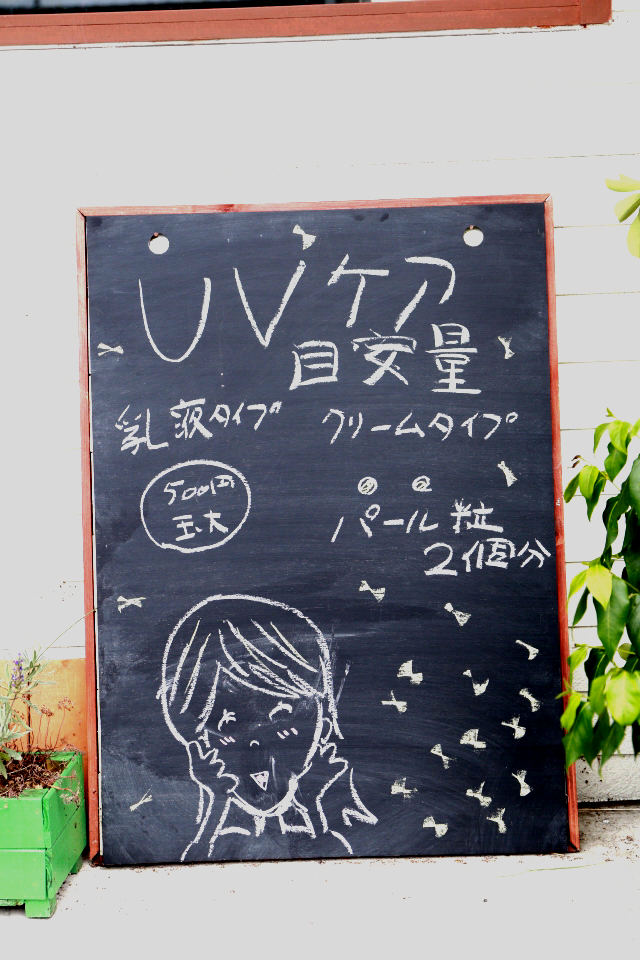 UVケア
目安量
乳液タイプ
クリームタイプ
500円
玉大
パール粒
2個分